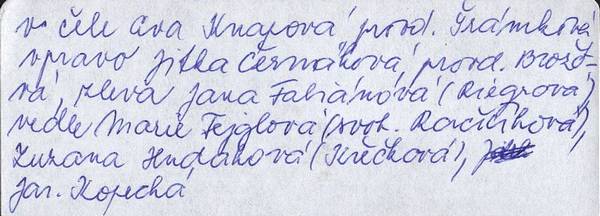 v čele Eva Knapová, provd. Šrámková
vpravo Jitka Čermáková, provd. Brožo-
vá, zleva Jana Fabiánová (Riegrová),
vedle Marie Fejglová (svob. Račičíková),
Zuzana Hudáková (Křečková),
Jar. Kopecká